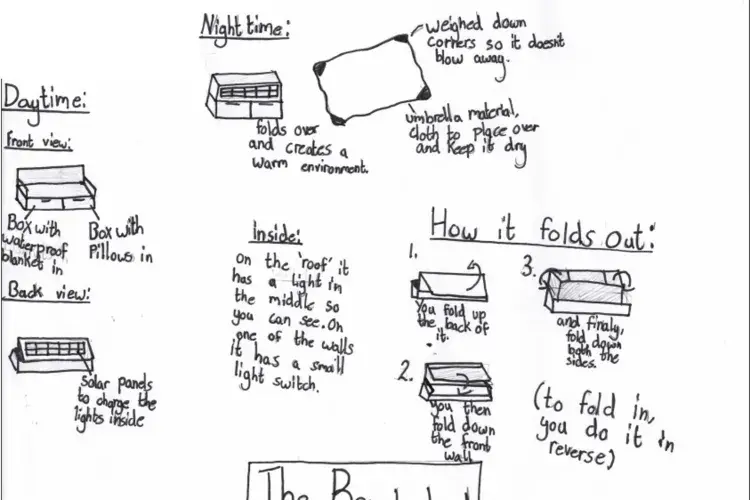 Night time:
weighed down
corners so it doesnt
blow away.
folds over
and creates a
warm environment.
umbrella material,
cloth to place over
and keep it dry
Daytime:
front view:
Box with
waterproof
blanket in
Box with
Pillows in
Back view:
Solar panels
to charge the
lights inside
Inside:
on the 'roof' it
has a light in
the middle so
you can see. On
one of the walls
it has a small
light switch.
How it folds out:
1.
You fold up
the back of
it.
2.
you then
fold down
the front
wall
3.
and finaly,
fold down
both the
sides.
(to fold in,
you do it in
reverse)
The